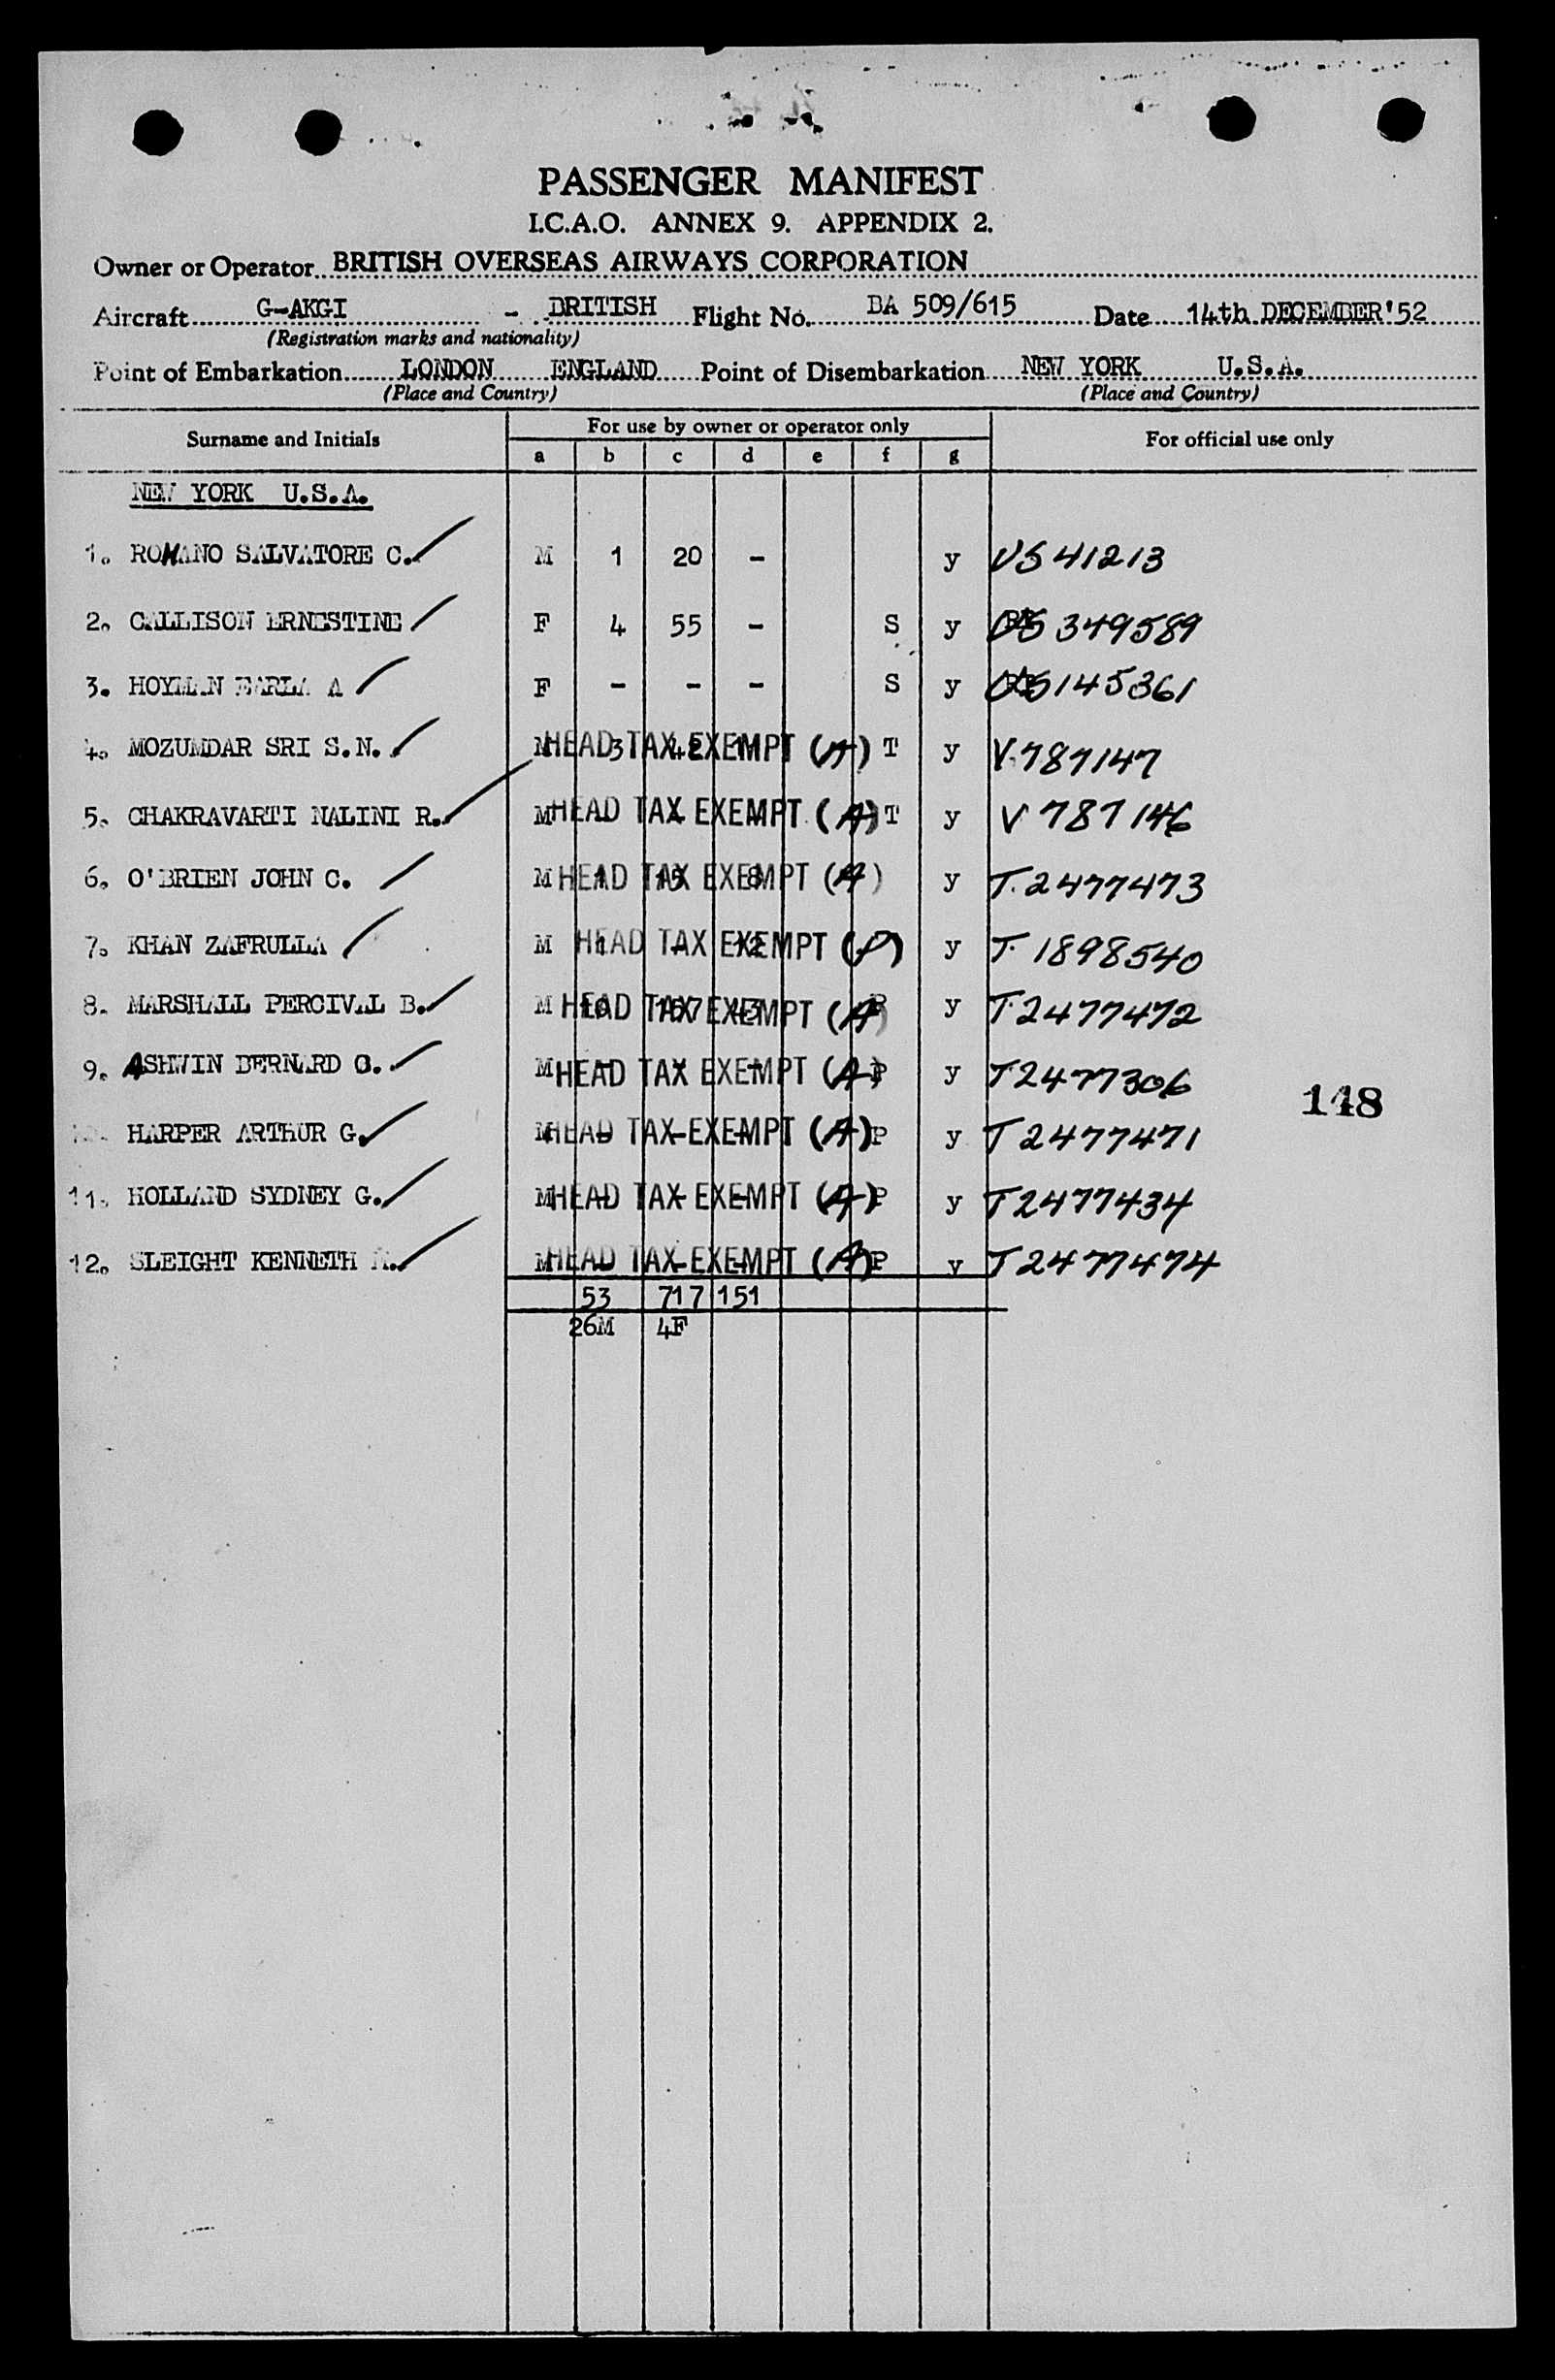 PASSENGER MANIFEST
I.C.A.O. ANNEX 9. APPENDIX 2.
Owner or Operator BRITISH OVERSEAS AIRWAYS CORPORATION
Aircraft G-AKGI - BRITISH Flight No. BA 509/615 Date 14th DECEMBER'52
(Registration marks and nationality)
Point of Embarkation LONDON ENGLAND Point of Disembarkation NEW YORK U.S.A.
(Place and Country) (Place and Country)
Surname and Initials For use by owner or operator only For official use only
a b c d e f g
NEW YORK U.S.A.
1. ROMANO SALVATORE C. M 1 20 - y US 41213
2. CALLISON ERNESTINE F 4 55 - S y 349589
3. HOYMAN EARLA A F - - - S y 145361
4. MOZUMDAR SRI S.N. M HEAD TAX EXEMPT 3 42 T y V.787147
5. CHAKRAVARTI NALINI R. M HEAD TAX EXEMPT (A) T y V 787146
6. O'BRIEN JOHN C. M HEAD TAX EXEMPT (A) 1 15 8 y T.2477473
7. KHAN ZAFRULLA M HEAD TAX EXEMPT 1 - 12 y T. 1898540
8. MARSHALL PERCIVAL B. M HEAD TAX EXEMPT (A) P y T.2477472
9. ASHWIN BERNARD G. M HEAD TAX EXEMPT (A) P y T2477306
148
HARPER ARTHUR G. M HEAD TAX EXEMPT (A) P y T 2477471
11. HOLLAND SYDNEY G. M HEAD TAX EXEMPT (A) P y T2477434
12. SLEIGHT KENNETH M HEAD TAX EXEMPT (A) P y T2477474
53 717 151
26M 4F